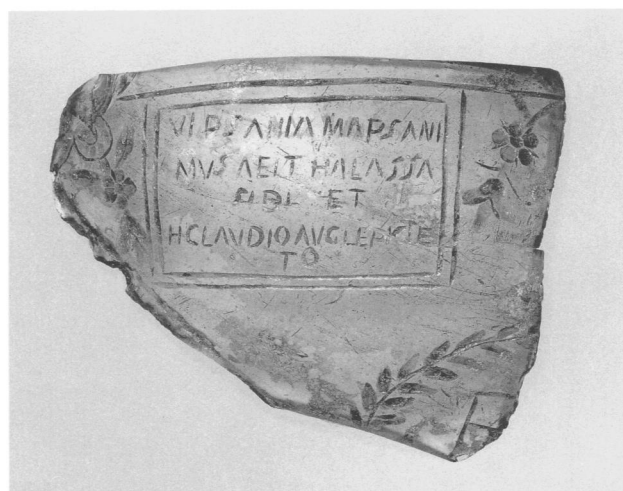 VIPSANIA M VIPSANI
MVSAE L THALASSA
SIBI ET
TI CLAVDIO AVG L EPICTE
TO